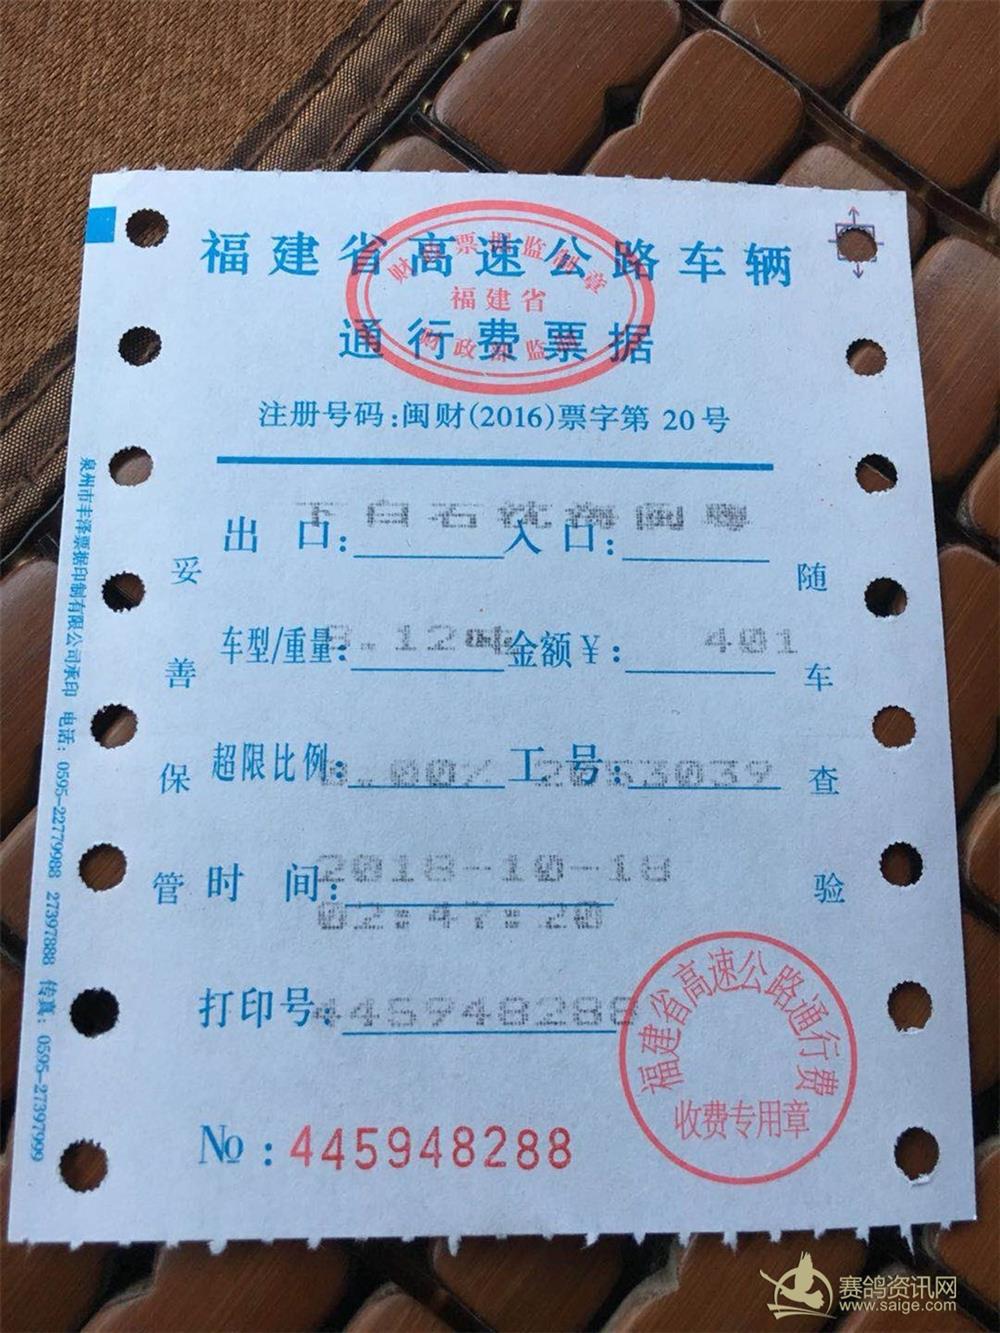 福建省高速公路车辆
通行费票据
财政票据监制章
福建省
财政部监制
注册号码:闽财(2016)票字第 20号
出 口: 下白石 入 口: 闽粤
车型/重量: 8.12吨 金额¥: 401
超限比例: 0.00% 工 号: 2053039
时 间: 2018-10-18
02:47:20
打印号: 445948288
№: 445948288
妥善保管
随车查验
福建省高速公路通行费
收费专用章
泉州市丰泽票据印制有限公司承印 电话: 0595-22779988 27397888 传真: 0595-27397999
赛鸽资讯网
www.saige.com